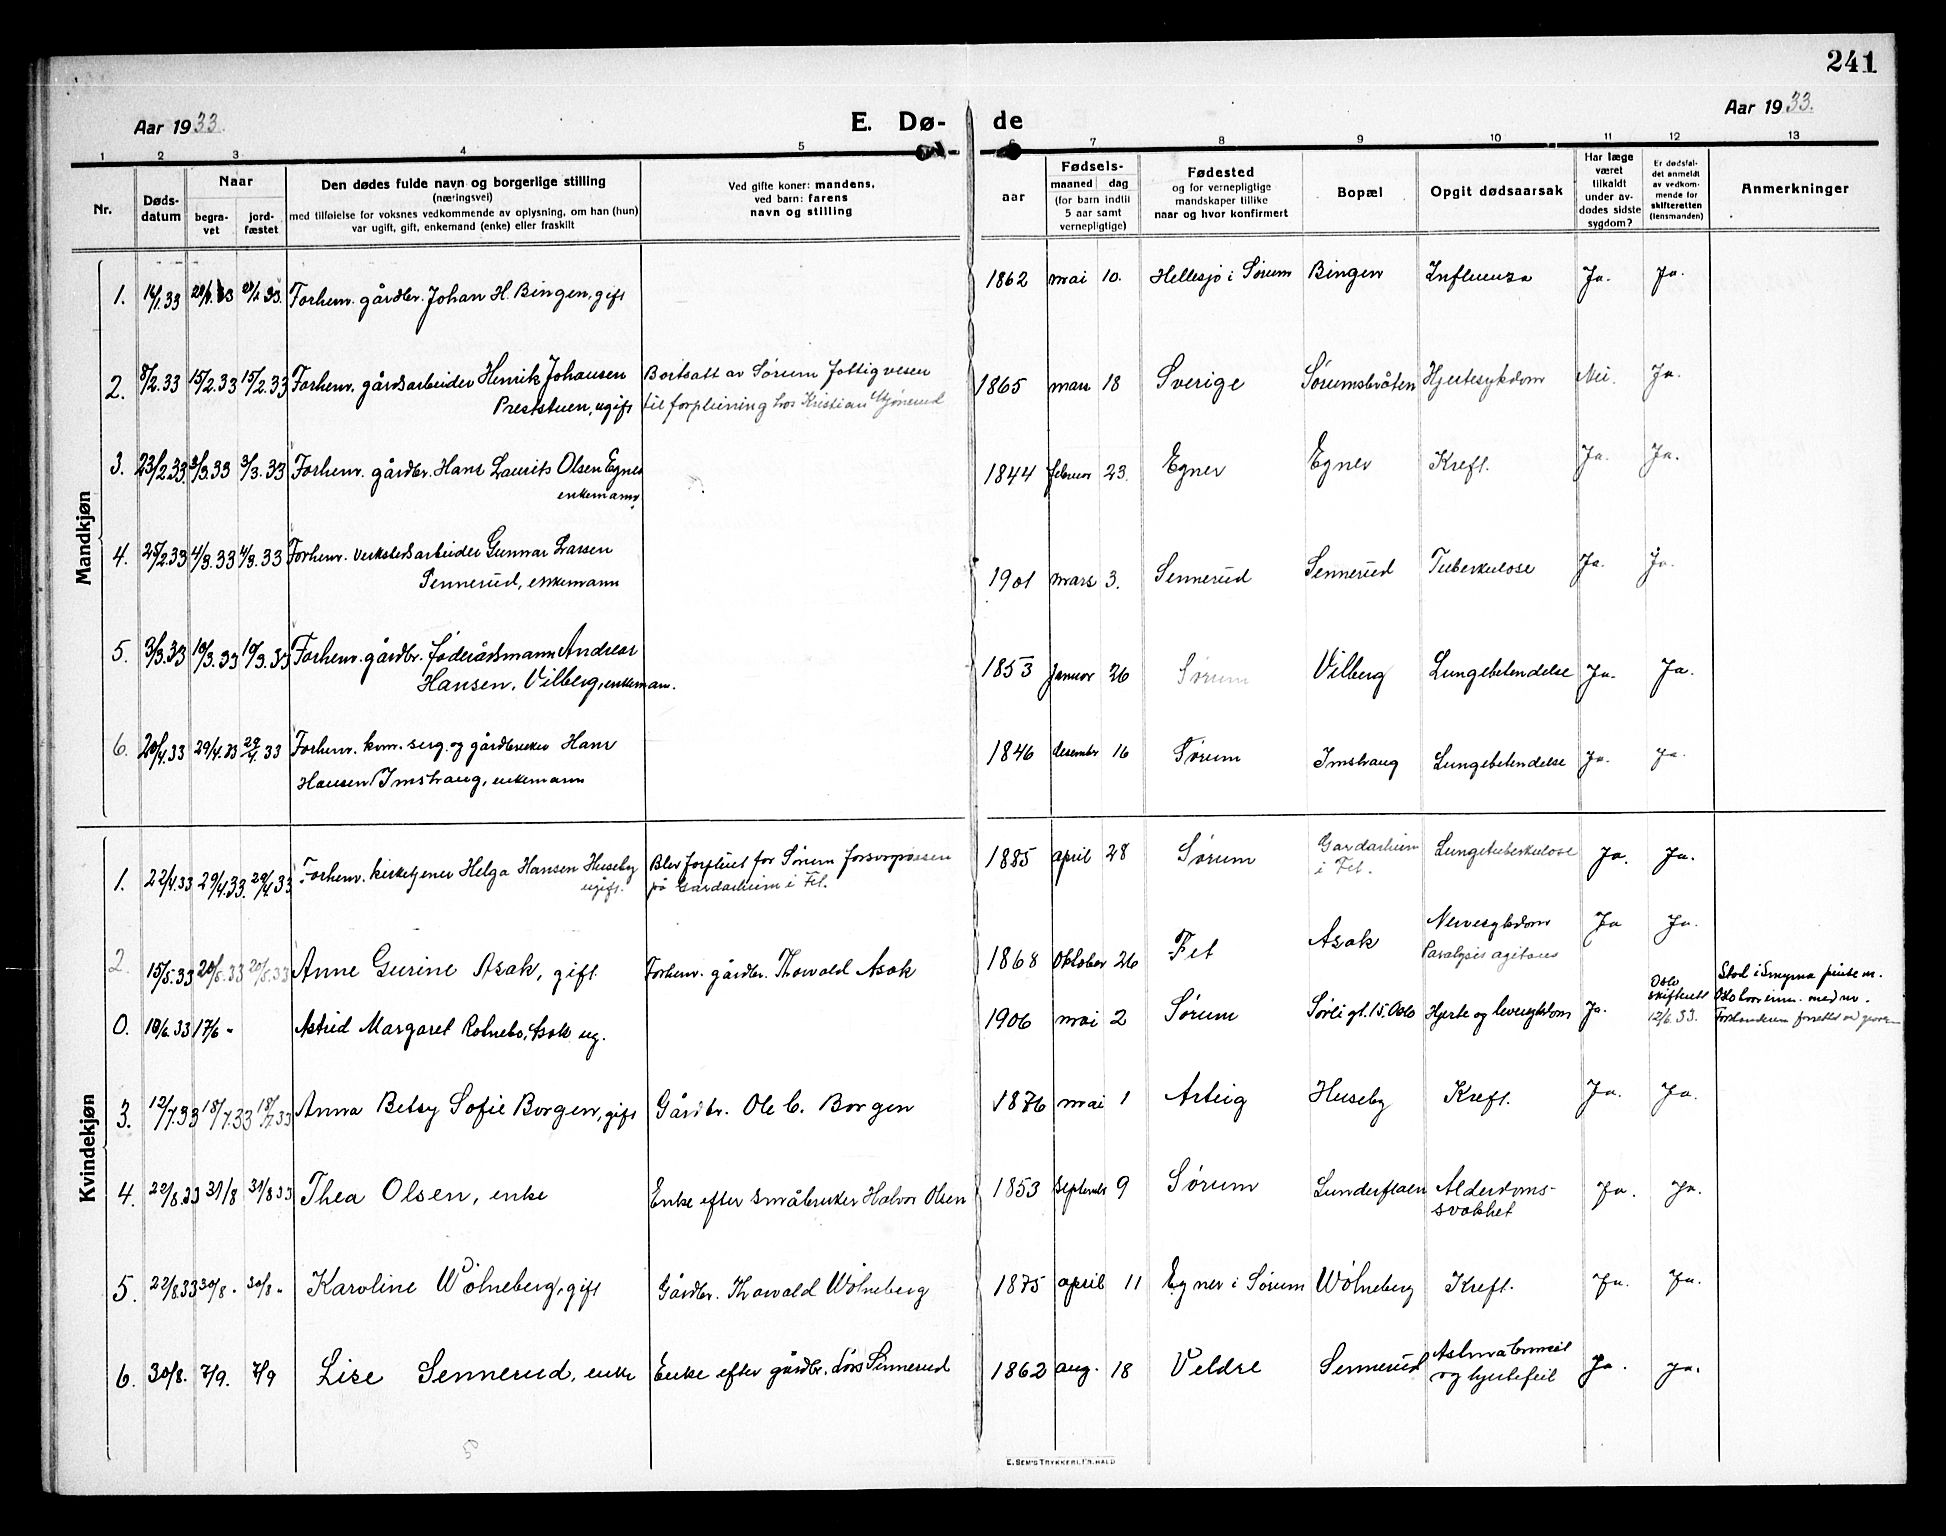 241
Aar 1933.
E. Dø- de
Aar 1933.
1 2 3 4 5 6 7 8 9 10 11 12 13
Nr.
Døds-
datum
Naar
begra-
vet
jord-
fæstet
Den dødes fulde navn og borgerlige stilling
(næringsvei)
med tilføielse for voksnes vedkommende av oplysning, om han (hun)
var ugift, gift, enkemand (enke) eller fraskilt
Ved gifte koner: mandens,
ved barn: farens
navn og stilling
aar
Fødsels-
maaned dag
(for barn indtil
5 aar samt
vernepligtige)
Fødested
og for vernepligtige
mandskaper tillike
naar og hvor konfirmert
Bopæl
Opgit dødsaarsak
Har læge
været
tilkaldt
under av-
dødes sidste
sygdom?
Er dødsfal-
det anmeldt
av vedkom-
mende for
skifteretten
(lensmanden)
Anmerkninger
Mandkjøn
1. Forhenv. gårdbr. Johan H. Bingen, gift 1862 mai 10. Hellesjø i Sørum Bingen Influenza Ja. Ja.
2. 8/2.33 15/2.33 15/2.33 Forhenv. gårdsarbeider Henrik Johansen Bortsatt av Sørum fattigvesen 1865 mars 18 Sverige Sørumsbråten Hjertesykdom Nei. Ja.
Preststuen, ugift til forpleining hos Kristian
3. 23/2.33 3/3.33 3/3.33 Forhenv. gårdbr. Hans Laurits Olsen Egner 1844 februar 23. Egner Egner Kreft. Ja. Ja.
enkemann
4. 25/2.33 4/3.33 4/3.33 Forhenv. verkstedsarbeider Gunnar Larsen 1901 mars 3. Sennerud Sennerud Tuberkulose Ja. Ja.
Sennerud, enkemann
5. 3/3.33 10/3.33 10/3.33 Forhenv. gårdbr. føderådsmann Andreas 1853 Januar 26 Sørum Vilberg Lungebetendelse Ja. Ja.
Hansen, Vilberg, enkemann.
6. 20/4.33 29/4.33 29/4 33 Forhenv. kom. serg. og gårdbruker Hans 1846 desember 16 Sørum Imshaug Lungebetendelse Ja. Ja.
Hansen Imshaug, enkemann
Kvindekjøn
1. 22/4.33 29/4.33. 29/4.33 Forhenv. kirketjener Helga Hansen Huseby Blev forpleiet for Sørum forsorgsvesen 1885 april 28 Sørum Gardarheim Lungetuberkulose Ja. Ja.
ugift. på Gardarheim i Fet. i Fet.
2. 15/5.33 20/5.33 20/5.33 Anne Gurine Asak, gift Forhenv. gårdbr. Thorvald Asak 1868 Oktober 26 Fet Asak Nervesykdom Ja Ja.
Paralysis agitans
0. 10/6.33 17/6 - Astrid Margaret Rolnebo, Asak ug. 1906 mai 2 Sørum Sørligt. 15, Oslo Hjerte og leversykdom Ja. Oslo
skifterett
12/6.33.
3. 12/7.33 18/7.33 18/7.33 Anna Betsy Sofie Borgen, gift Gårdbr. Ole C. Borgen 1876 mai 1 Arteig Huseby Kreft. Ja. Ja.
4. 22/8.33 31/8 31/8 33 Thea Olsen, enke Enke efter småbruker Halvor Olsen 1853 September 9 Sørum Lunderfloen Alderdoms-
svakhet Ja. Ja.
5. 22/8.33 30/8 - 30/8 - Karoline Wölneberg, gift Gårdbr. Thorvald Wölneberg 1875 april 11 Egner i Sørum Wölneberg Kreft. Ja. Ja.
6. 30/8. 7/9. 7/9 Lise Sennerud, enke Enke efter gårdbr. Lars Sennerud 1862 aug. 18 Veldre Sennerud
og hjertefeil Ja. Ja.
50
E. SEM'S TRYKKERI, FR. HALD